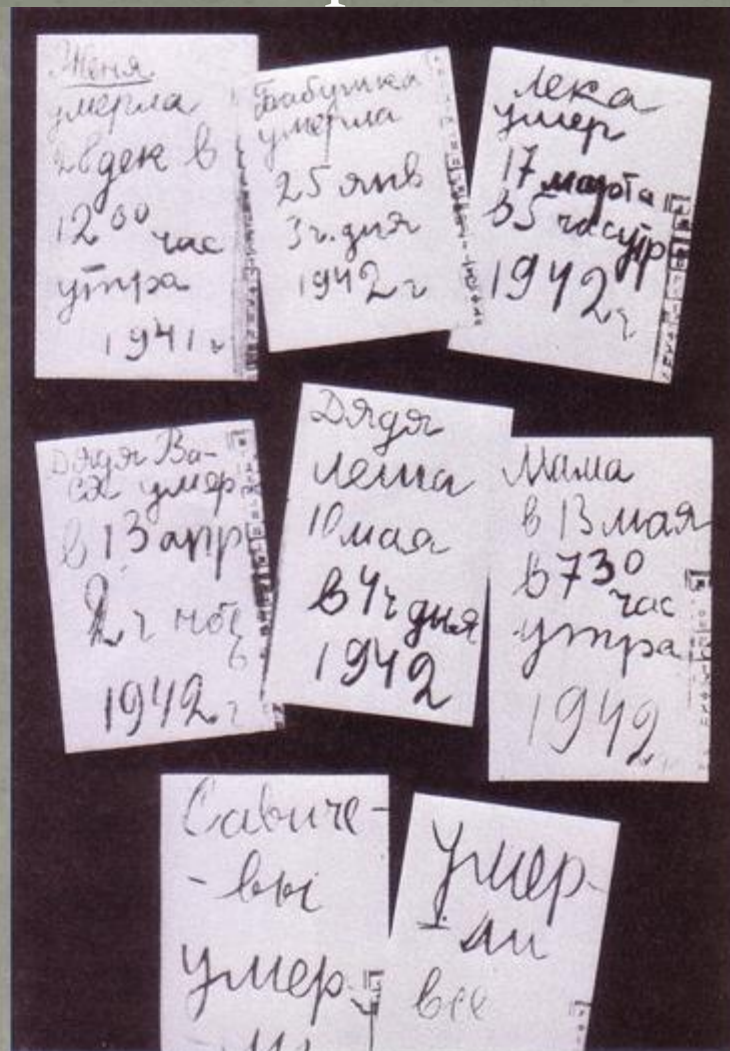 Женя
умерла
28 дек в
12 00 час
утра
1941 г
Бабушка
умерла
25 янв
3 ч. дня
1942 г
Лека
умер
17 марта
в 5 час утр
1942 г
Дядя Ва-
ся умер
в 13 апр
2 ч ноч
1942 г
Дядя
Леша
10 мая
в 4 ч дня
1942
Мама
в 13 мая
в 7 30
час
утра
1942
Савиче-
-вы
умер
ли
Умер-
ли
все